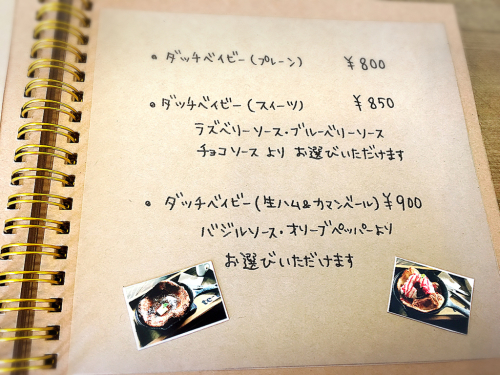 • ダッチベイビー(プレーン) ￥800
• ダッチベイビー(スイーツ) ￥850
ラズベリーソース・ブルーベリーソース
チョコソース より お選びいただけます
• ダッチベイビー(生ハム&カマンベール)￥900
バジルソース・オリーブペッパーより
お選びいただけます